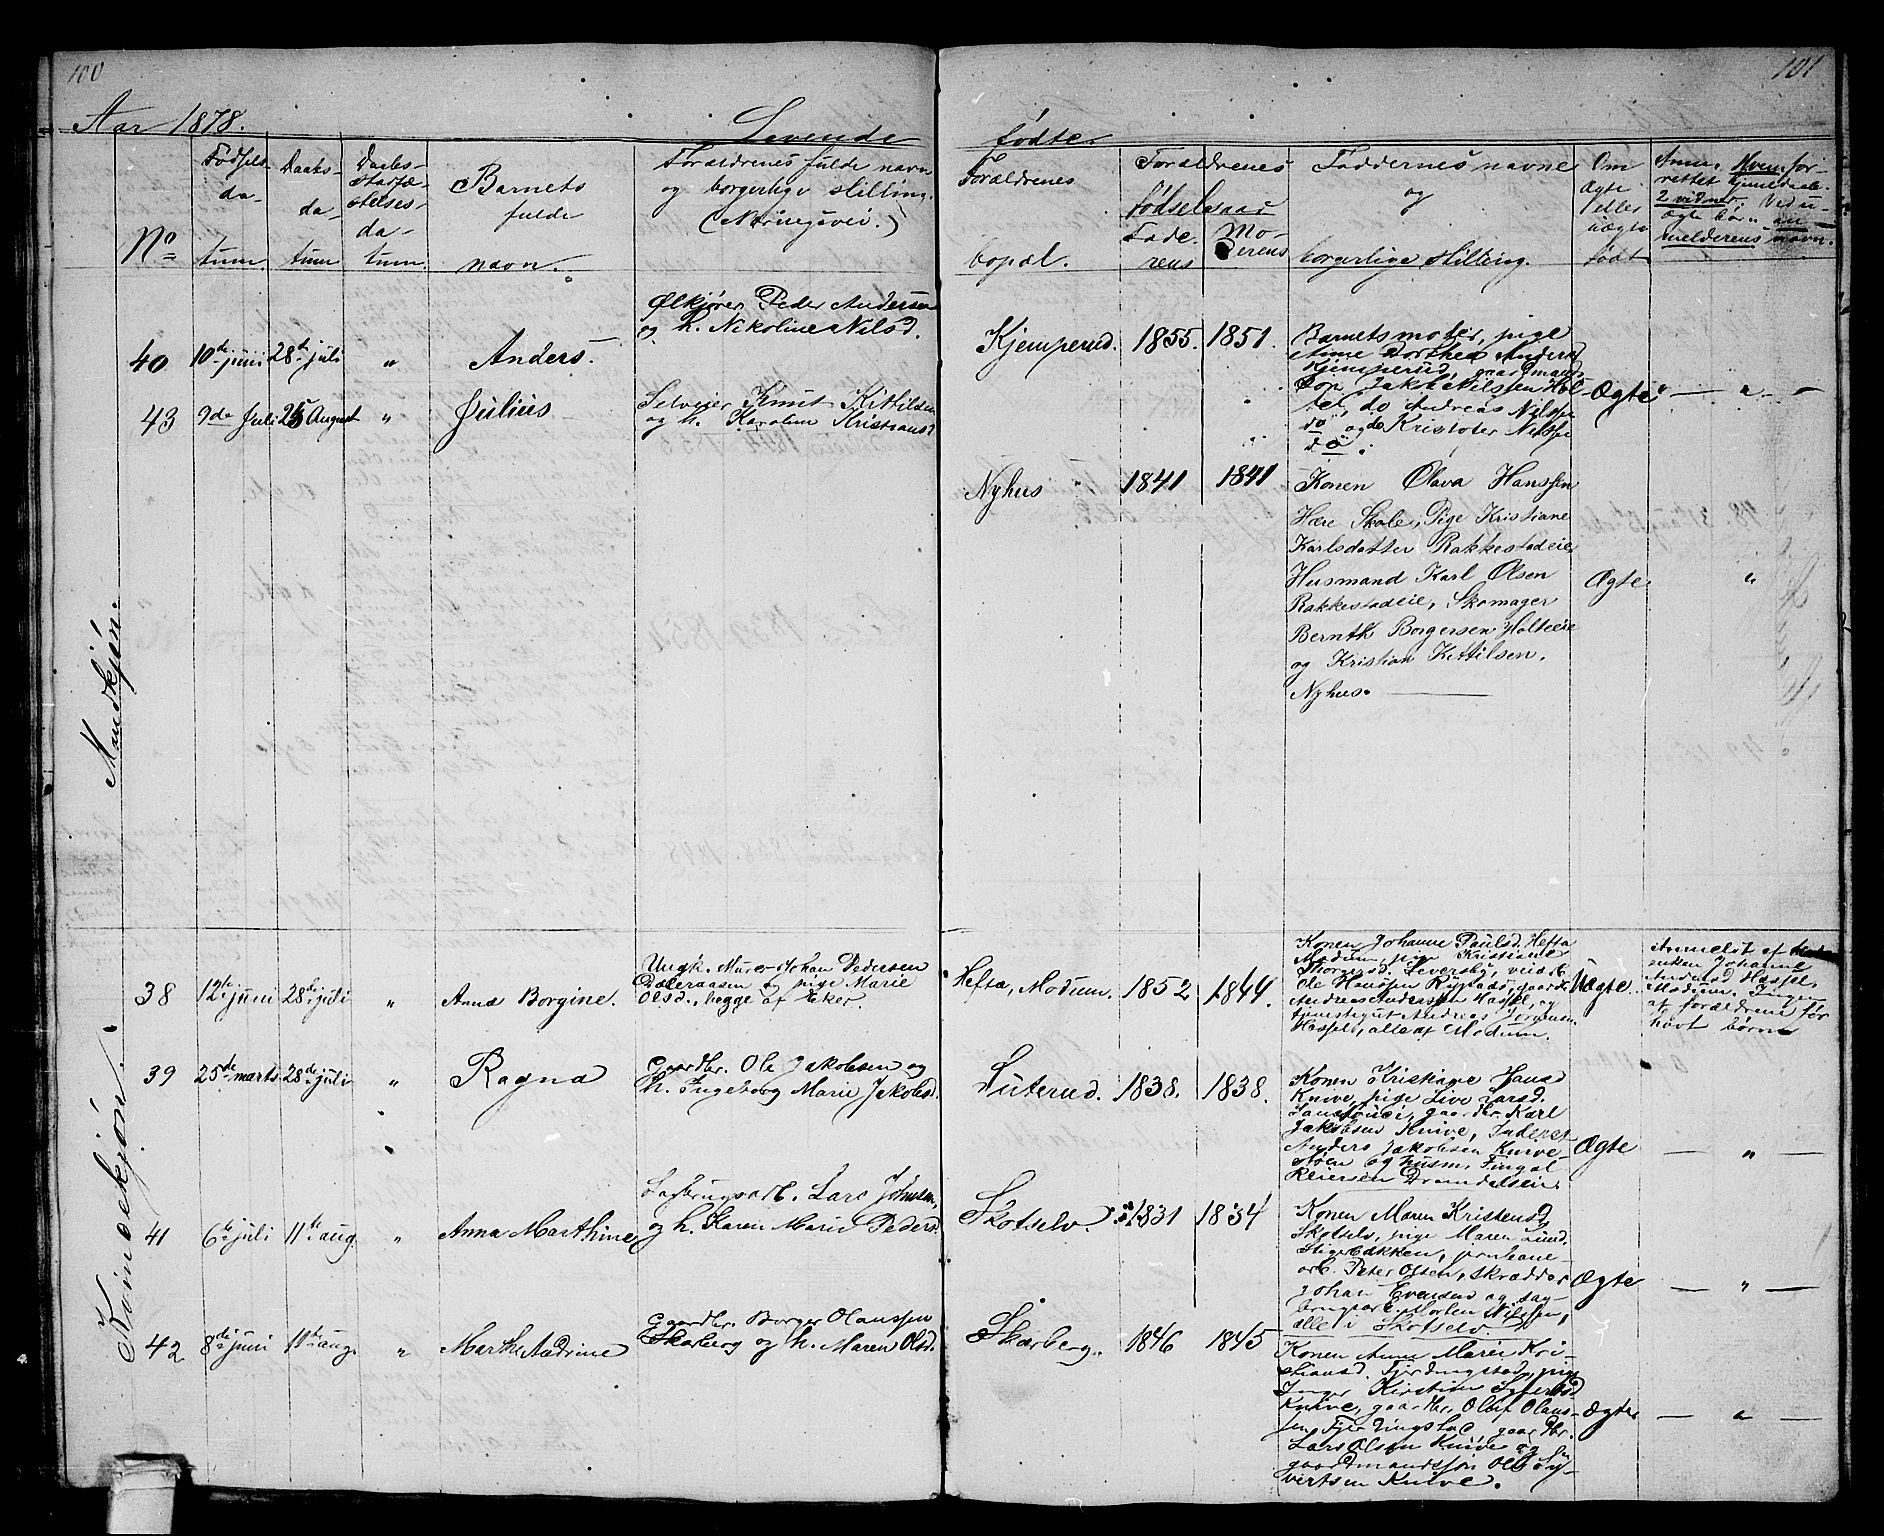 100
101
Aar 1878.
Levende
fødte
No
Fødsels
da-
tum.
Daabs-
da-
tum
Daabs-
stadfæ-
stelses-
da-
tum.
Barnets
fulde
navn.
Forældrenes fulde navn
og borgerlige stilling.
Forældrenes
bopæl.
Forældrenes
fødselsaar
Fade-
rens
Mo-
derens
Faddernes navne
og
borgerlige stilling.
Om
ægte
eller
uægte
født
Anm. Hvem for-
rettet hjemedaab.
2 vidner. Ved u-
ægte børn an-
melderens navn.
Mandkjøn.
40
10de juni
28de juli
"
Anders.
Ølkjører Peder Andersen
og h. Nikoline Nilsd.
Kjemperud.
1855.
1851.
Barnets moter, pige
Anne Dorthea Anders
Kjemperud, gaardmand
Jakob Nilssen Hol
do Andreas Nilsse
do og do Kristofer Nilsse
do.
Ægte
— " —
43
9de Juli
25 August
"
Julius
Selveier Knut Kittilsen
og h. Karoline Kristiansd
Nyhus
1841
1841
Konen Olava Hanssen
Hære Skole, Pige Kristiane
Karlsdatter Rakkestadeie
Husmand Karl Olsen
Rakkestadeie, Skomager
Bernth Borgersen Holteeie
og Kristian Kittilsen.
Nyhus.
Ægte
"
Kvindekjøn.
38
12te juni
28de juli
"
Anna Borgine.
Ungk. Murer Johan Pedersen
og pige Marie
Olsd., begge af Eker.
Hefta, Modum.
1852
1844.
Konen Johanne Paulsd. Hefta
Modum, pige Kristiane
Thorgrsd. Leversby,
Ole Hanssen
Andreas Anderssen Hassel, og
Andreas Jørgensen
Hassel, alle af Modum.
Uægte
Anmeldt af
enken Johanne
Andersd Hassel,
Modum. Ingen
af forældrene før
havt børn
39
25de marts
28de juli
"
Ragna
Gaardbr. Ole Jakobsen og
h. Ingeborg Marie Jakobsd.
Luterud.
1838.
1838.
Konen Kristiane Hansd
Knive, pige Live Larsd.
gaardbr. Karl
Jakobsen Knive, Inderst
Anders Jakobsen Knive-
støen og husm. Fingal
Reiersen Dramdalseie.
Ægte
— " —
41
6te juli
11te aug.
"
Anna Marthine
Sagbrugsarb. Lars Johnsen,
og h. Karen Marie Pedersd
Skotselv.
1831
1834
Konen Maren Kristensd
Skotselv, pige Maren Lund.
Stigerbakken, jernbane
arb. Peter Olsen, skrædder
Johan Evensen og sag-
brugsarb. Morten Nilssen,
alle i Skotselv.
Ægte
— " —
42
8de juni
11te aug.
"
Marthe Andrine
Gaardbr. Borger Olanssen
Skarberg og h. Maren Olsd.
Skarberg.
1846
1845
Konen Anne Marie Kri-
stiansd. Fjerdingstad, pige
Inger Kirstine Syvertsd
Knive, gaardbr. Oluf Olaus-
sen Fjerdingstad, gaardbr.
Lars Olsen Knive og
gaardmandssøn Ole Sy-
vertsen Knive.
Ægte
— " —